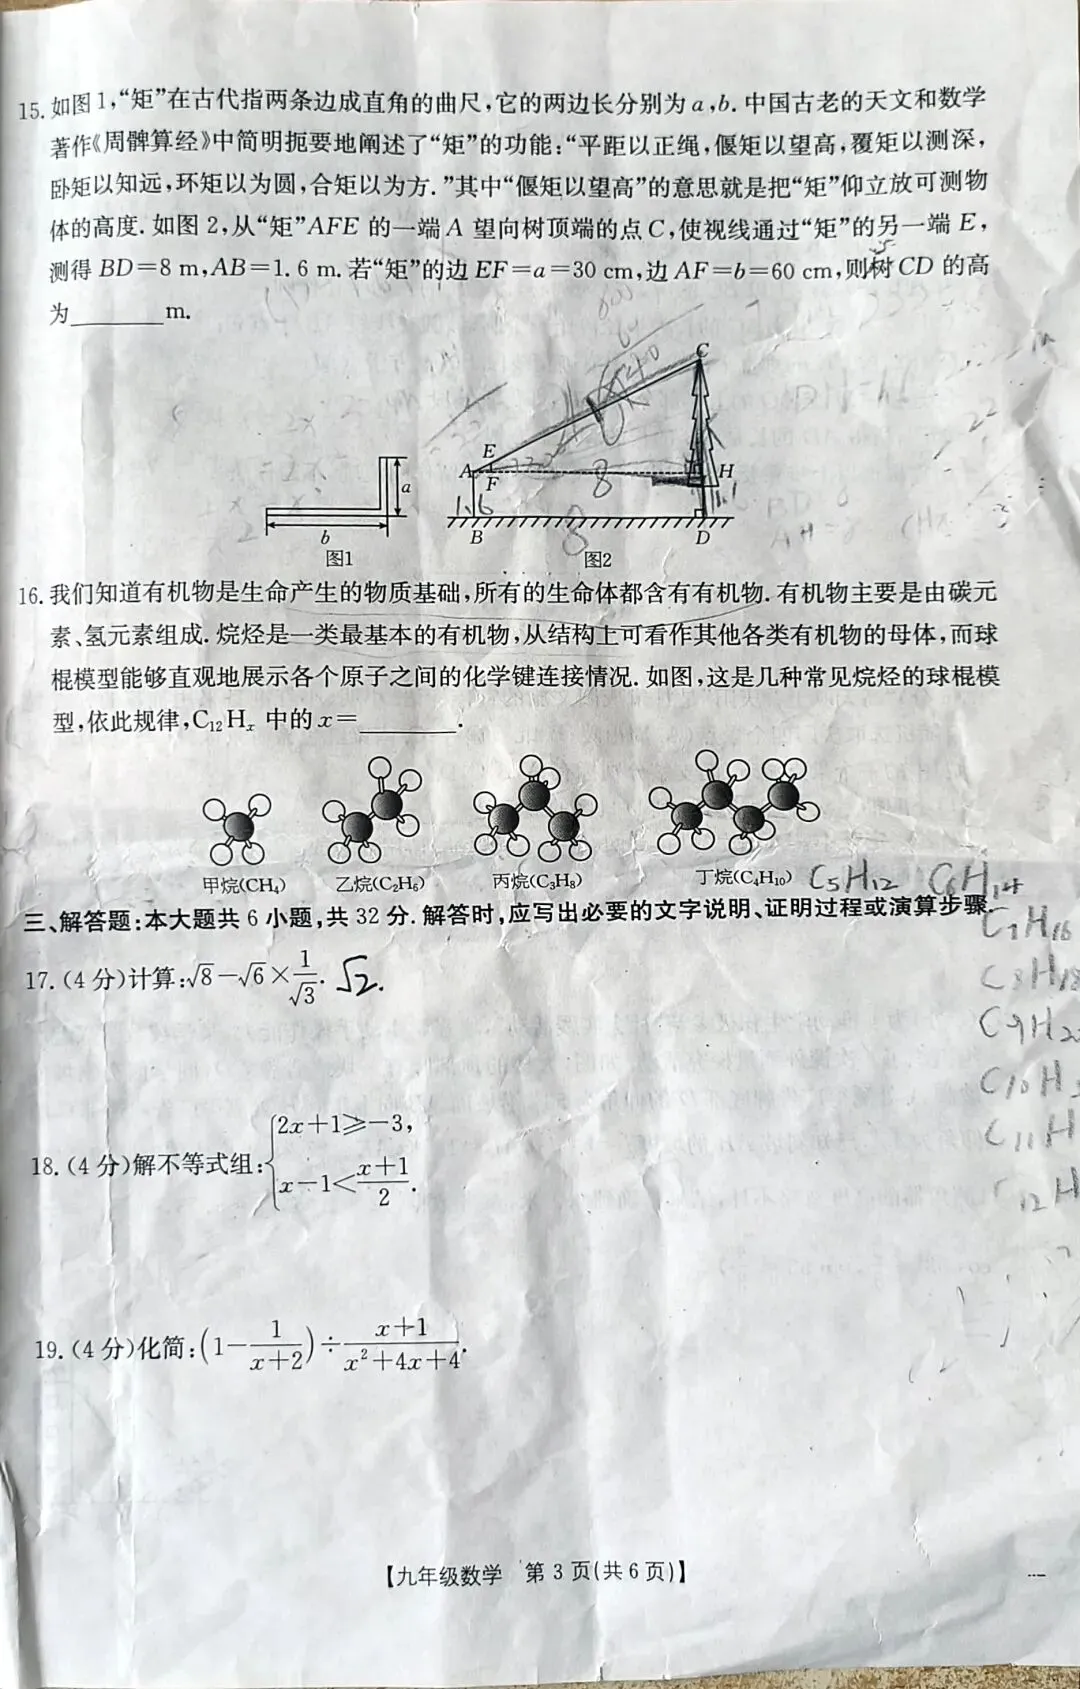 15. 如图1,“矩”在古代指两条边成直角的曲尺,它的两边长分别为a,b. 中国古老的天文和数学
著作《周髀算经》中简明扼要地阐述了“矩”的功能:“平距以正绳,偃矩以望高,覆矩以测深,
卧矩以知远,环矩以为圆,合矩以为方.”其中“偃矩以望高”的意思就是把“矩”仰立放可测物
体的高度. 如图2,从“矩”AFE的一端A望向树顶端的点C,使视线通过“矩”的另一端E,
测得BD=8 m,AB=1.6 m. 若“矩”的边EF=a=30 cm,边AF=b=60 cm,则树CD的高
为________m.
C
E
A
F
H
8
1.6
a
b
B
8
D
图1
图2
16. 我们知道有机物是生命产生的物质基础,所有的生命体都含有有机物. 有机物主要是由碳元
素、氢元素组成. 烷烃是一类最基本的有机物,从结构上可看作其他各类有机物的母体,而球
棍模型能够直观地展示各个原子之间的化学键连接情况. 如图,这是几种常见烷烃的球棍模
型,依此规律,C₁₂Hₓ中的x=________.
甲烷(CH₄) 乙烷(C₂H₆) 丙烷(C₃H₈) 丁烷(C₄H₁₀) C₅H₁₂ C₆H₁₄
三、解答题:本大题共6小题,共32分. 解答时,应写出必要的文字说明、证明过程或演算步骤.
C₇H₁₆
17. (4分)计算:√8-√6×1/√3. √2.
C₈H₁₈
C₉H₂₀
C₁₀H
C₁₁H
18. (4分)解不等式组:{2x+1≥-3, x-1<(x+1)/2.
₁₂H
19. (4分)化简:(1-1/(x+2))÷(x+1)/(x²+4x+4).
【九年级数学 第3页(共6页)】